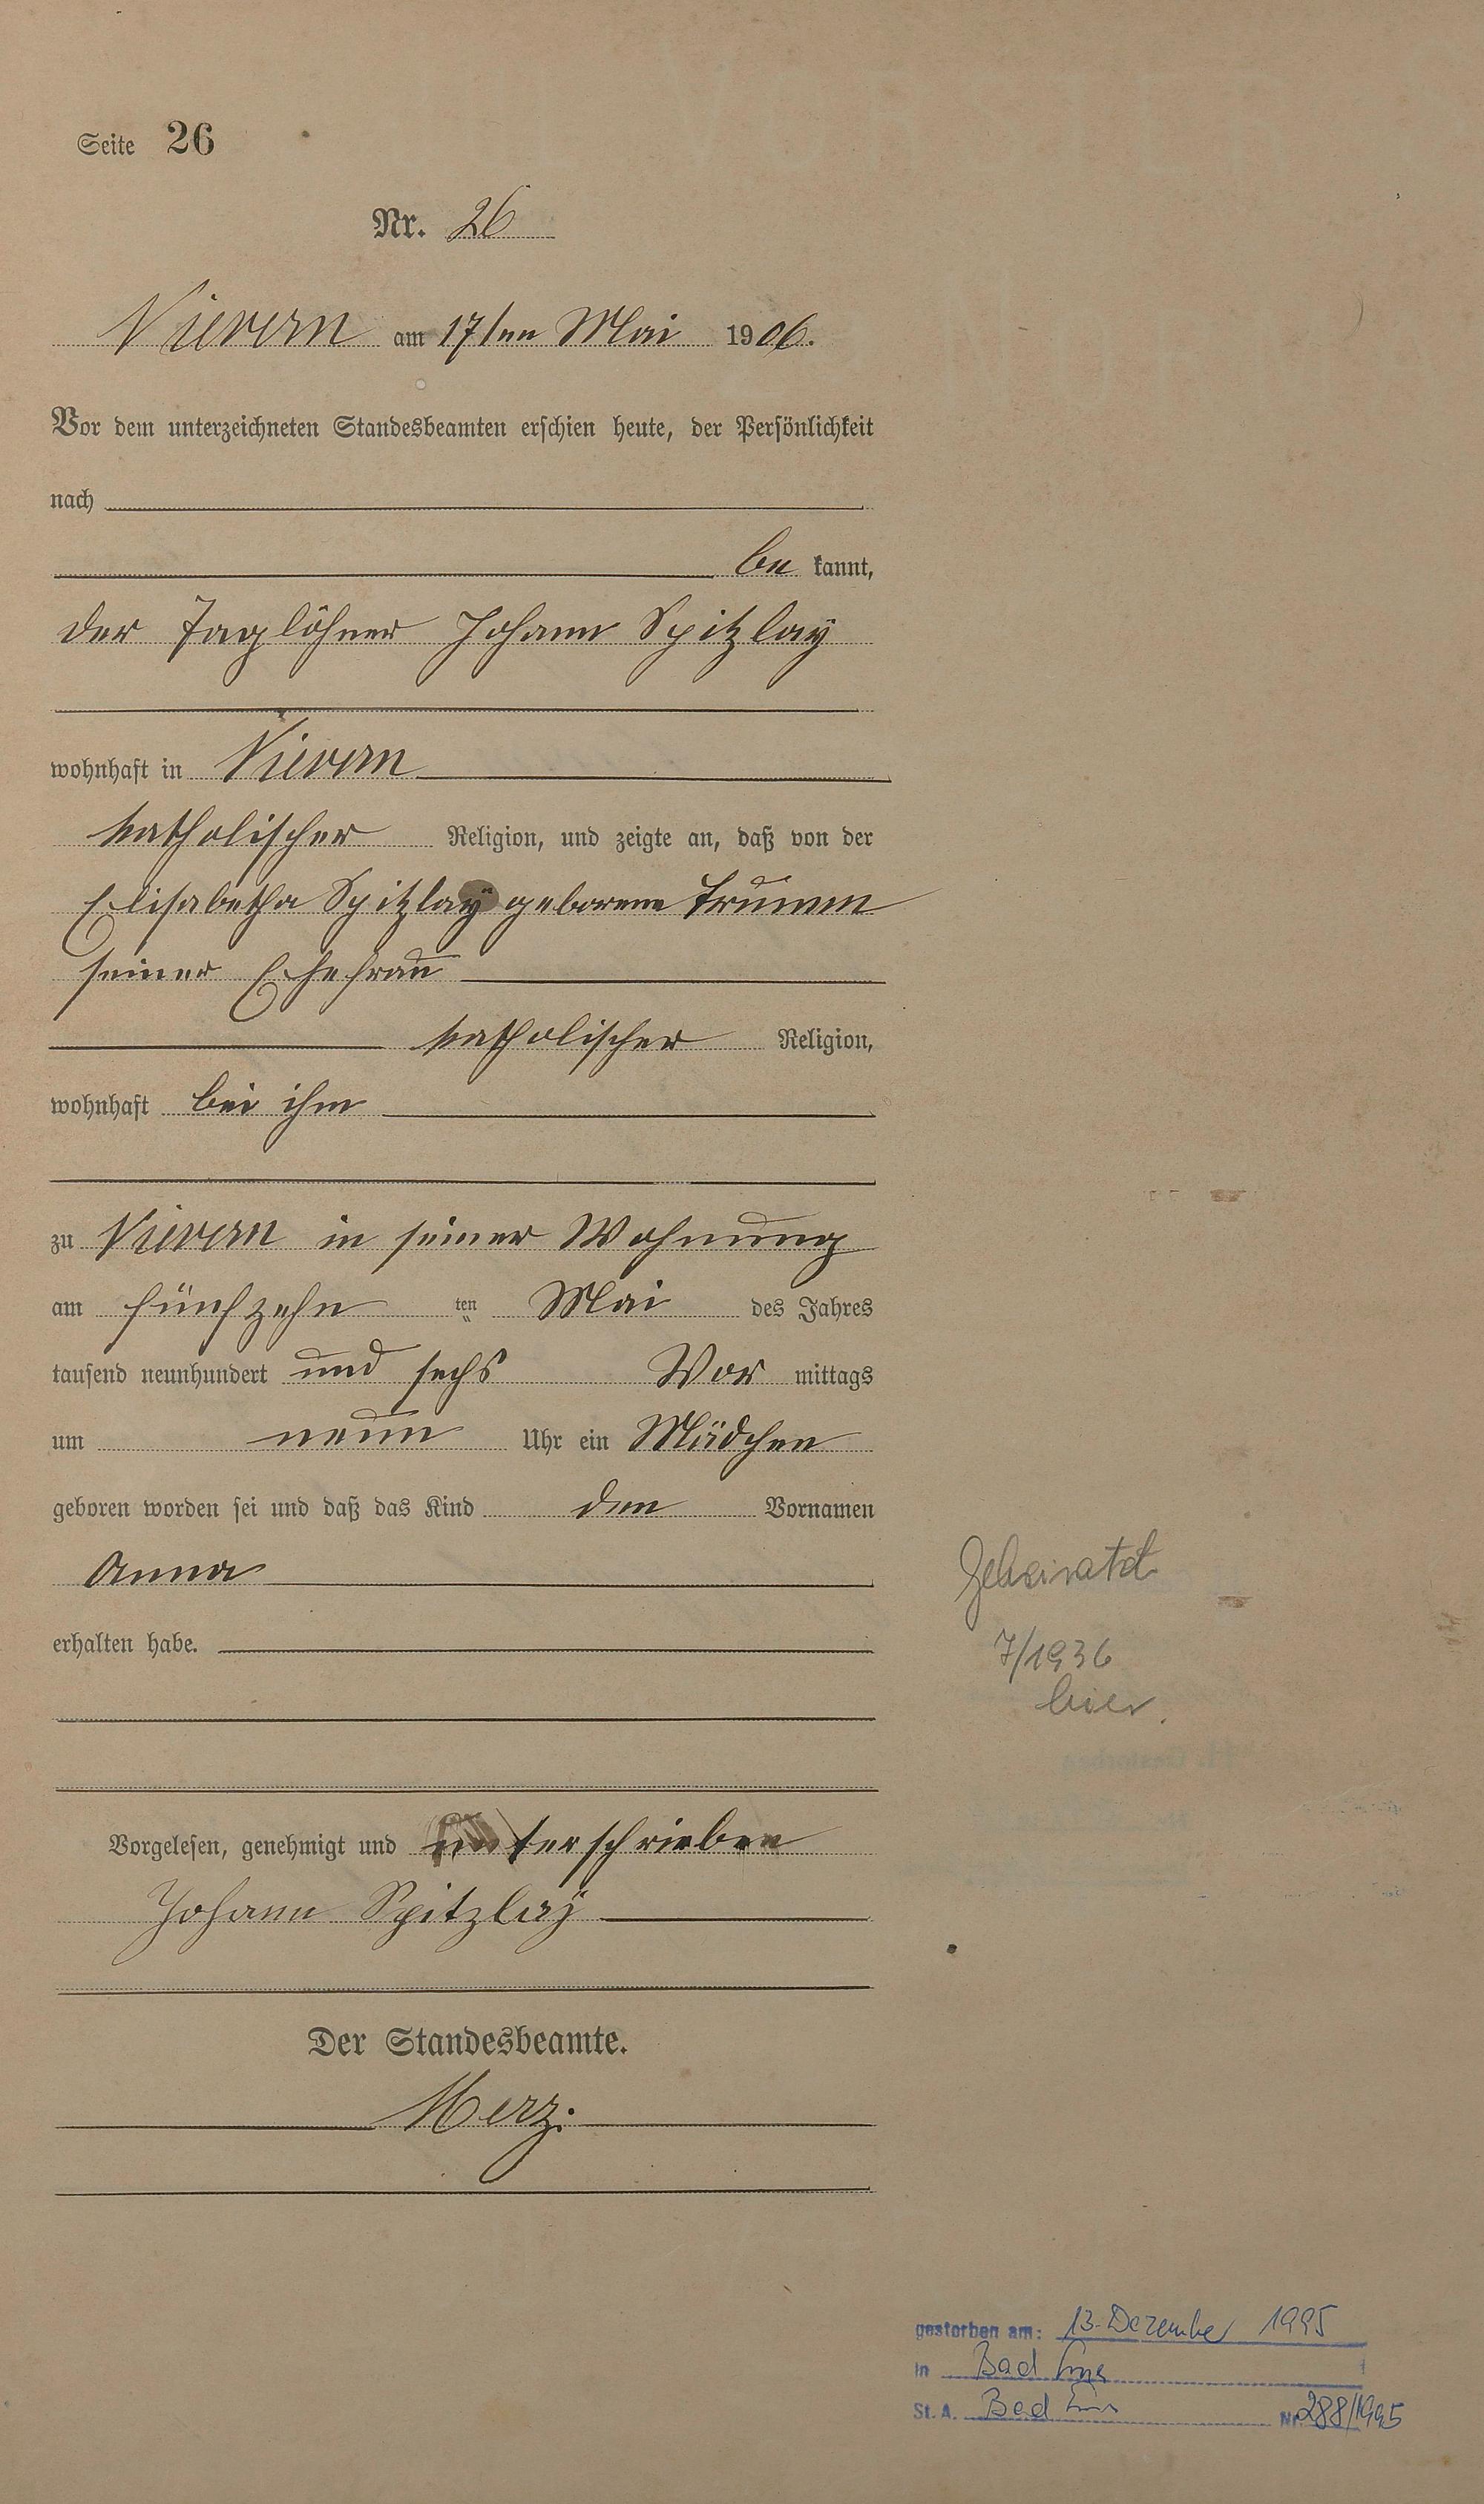 Seite 26
Nr. 26
Nievern am 17ten Mai 1906.
Vor dem unterzeichneten Standesbeamten erschien heute, der Persönlichkeit
nach
be kannt,
der Taglöhner Johann Spitzlaÿ
wohnhaft in Nievern
katholischer Religion, und zeigte an, daß von der
Elisabetha Spitzlaÿ geborene Trumm
seiner Ehefrau
katholischer Religion,
wohnhaft bei ihm
zu Nievern in seiner Wohnung
am fünfzehn ten Mai des Jahres
tausend neunhundert und sechs Vor mittags
um neun Uhr ein Mädchen
geboren worden sei und daß das Kind den Vornamen
Anna
erhalten habe.
Geheiratet
7/1936
hier.
Vorgelesen, genehmigt und unterschrieben
Johann Spitzlaÿ
Der Standesbeamte.
Merz.
gestorben am: 13. Dezember 1995
in Bad Ems
St. A. Bad Ems Nr. 288/1995